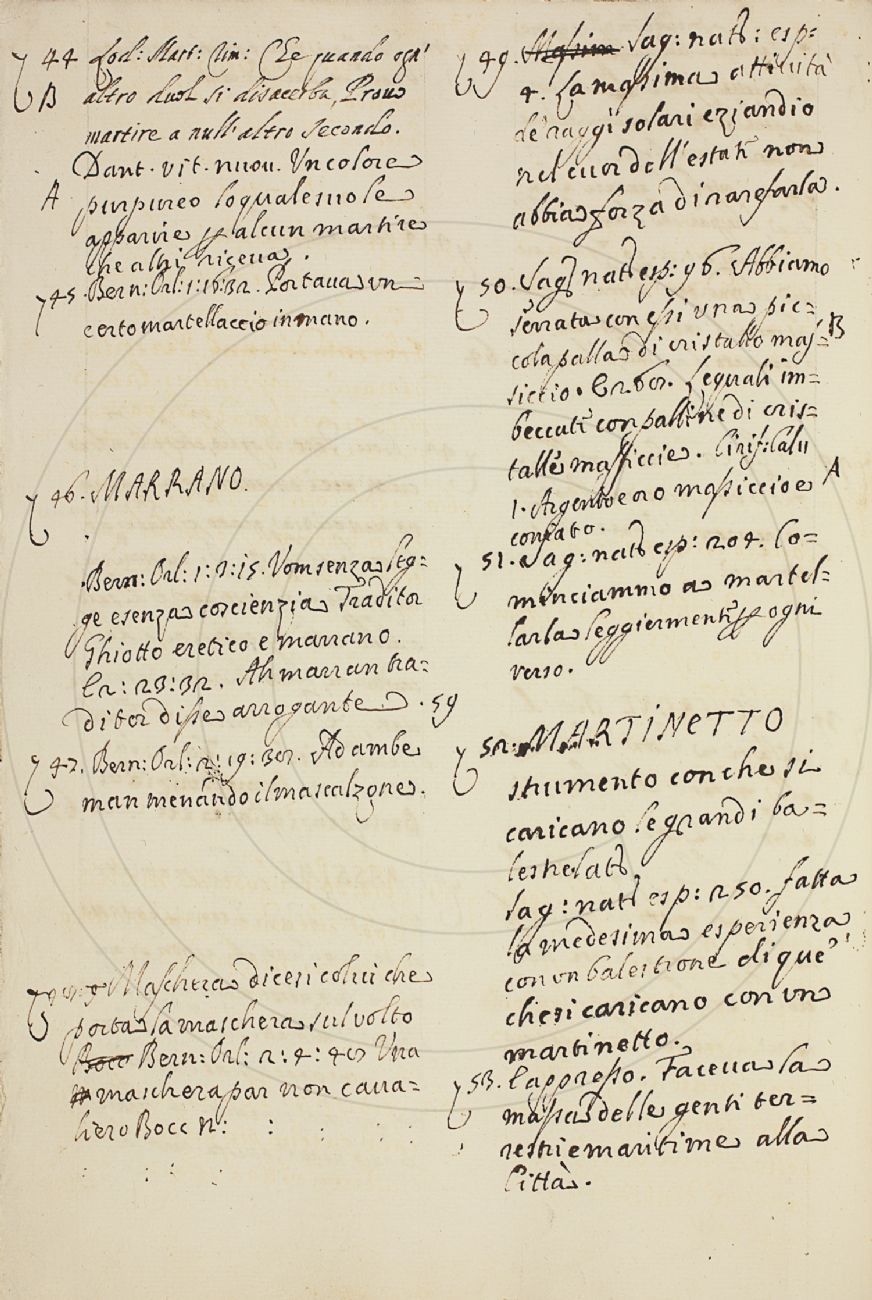 44 Lod: Mart: Rim: Che quando ogn'
B altro duol si disacerba, Prova
martire a null'altro secondo.
Dant. vit. nuov. Un colore
A purpureo lo quale suole
apparire p alcun martire
che altri riceva.
45. Bern: Orl: 1: 16: 32. Portava un
certo martellaccio in mano.
46. MARRANO.
Bern: Orl: 1: 1: 15. Vom senza leg=
ge e senza coscienzia Traditor
Ghiotto eretico e marrano.
E 2: 23: 32. Ah marran tra=
ditor disse arrogante. 59
47. Bern: Orl: 2: 19: 30. Ad ambe
man menando il mascalzone.
Maschera dicesi colui che
porta la maschera sul volto
Bocc Bern: Orl: 2: 4: 40 Una
maschera par non cava=
liero Bocc N:
49. Massim Sag: nat: esp:
4. La massima attività
de raggi solari eziandio
nel cuor dell'estate non
abbia forza di rarefarla.
50. Sag: nat: esp: 96. Abbiamo
serrata con essi una pic=
cola palla di cristallo mas= B
siccio. E 260. Le quali im=
beccate con palline di cris=
tallo massiccie. Cirif: Calv
1. Argento e oro massiccio e A
coniato.
51. Sag: nat: esp: 204. Co=
minciammo a martel=
larla leggiermente p ogni
verso.
52. MARTINETTO
strumento con che si
caricano le grandi ba=
lestre
Sag: nat: esp: 250. fatta
la medesima esperienza
con un balestrone di que'
che si caricano con un
martinetto.
53. E appresso. Faceva la
massa delle genti ter=
restri e maritime alla
Città.